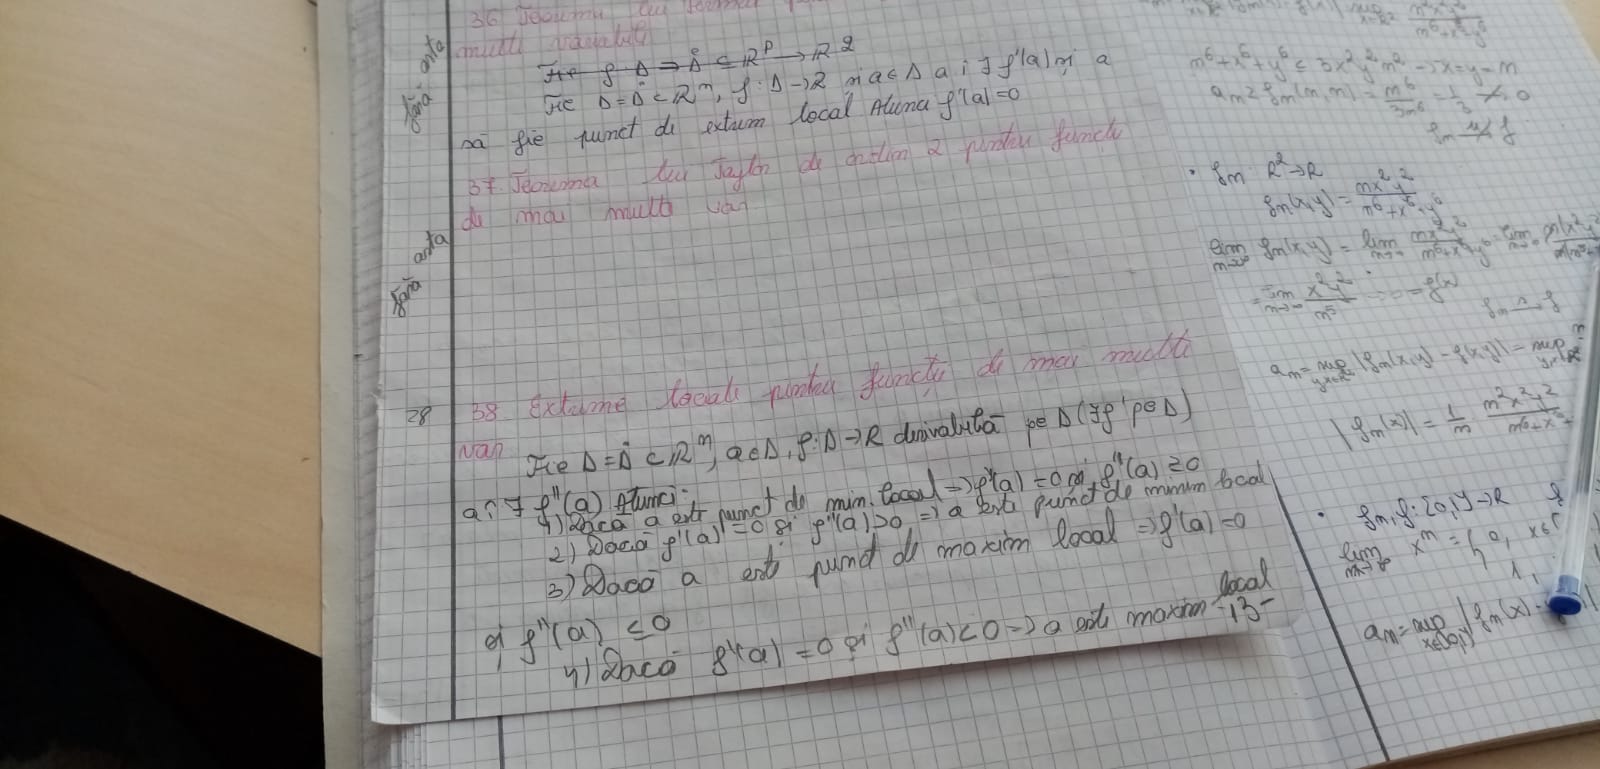 36 Teorema lui
multe variabile
Fie f D = D̊ ⊆ R^p → R^2
Fie D = D̊ ⊂ R^n, f: D → R și a ∈ D a.î. ∃ f'(a) și a
să fie punct de extrem local Atunci f'(a) = 0
fără asta
37. Teorema lui Taylor de ordin 2 pentru funcții
de mai multe var
fără asta
28
38 Extreme locale pentru funcții de mai multe
var
Fie D = D̊ ⊂ R^n, a ∈ D, f: D → R derivabilă pe D (∃ f' pe D)
a.î. ∃ f''(a) Atunci:
1) Dacă a este punct de min. local => f'(a) = 0 și f''(a) ≥ 0
2) Dacă f'(a) = 0 și f''(a) > 0, => a este punct de minim local
3) Dacă a este punct de maxim local => f'(a) = 0
și f''(a) ≤ 0
4) Dacă f'(a) = 0 și f''(a) < 0 => a este maxim local
-13-
m^6 + x^6 + y^6 ≤ 3x^2y^2m^2 → x = y = m
a_m ≥ f_m(m,m) = m^6/3m^6 = 1/3 ↛ 0
• f_m R^2 → R
f_m(x,y) = mx^2y^2/m^6+x^6+y^6
a_m = sup |f_m(x,y) - f(x,y)| = sup
|f_m(x)| = 1/m m^2x^2y^2/m^6+x^6+
• f_m, f: [0,1] → R
lim x^m = { 0, x∈[
1,
a_m = sup |f_m(x) -